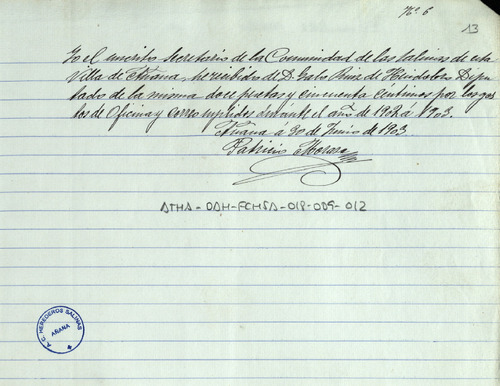 Nº 6
13
Yo el inscrito Secretario de la Comunidad de las salinas de esta
Villa de Añana, he recibido de D. Ruiz de Depu
tado de la misma doce pesetas y cincuenta centimos por los gas
tos de Oficina y correo suplidos durante el año de 1902 á 1903.
Añana a 30 de Junio de 1903
Patricio
ATHA-DAH-FCHSA-018-009-012
A. C. HEREDEROS SALINAS
AÑANA